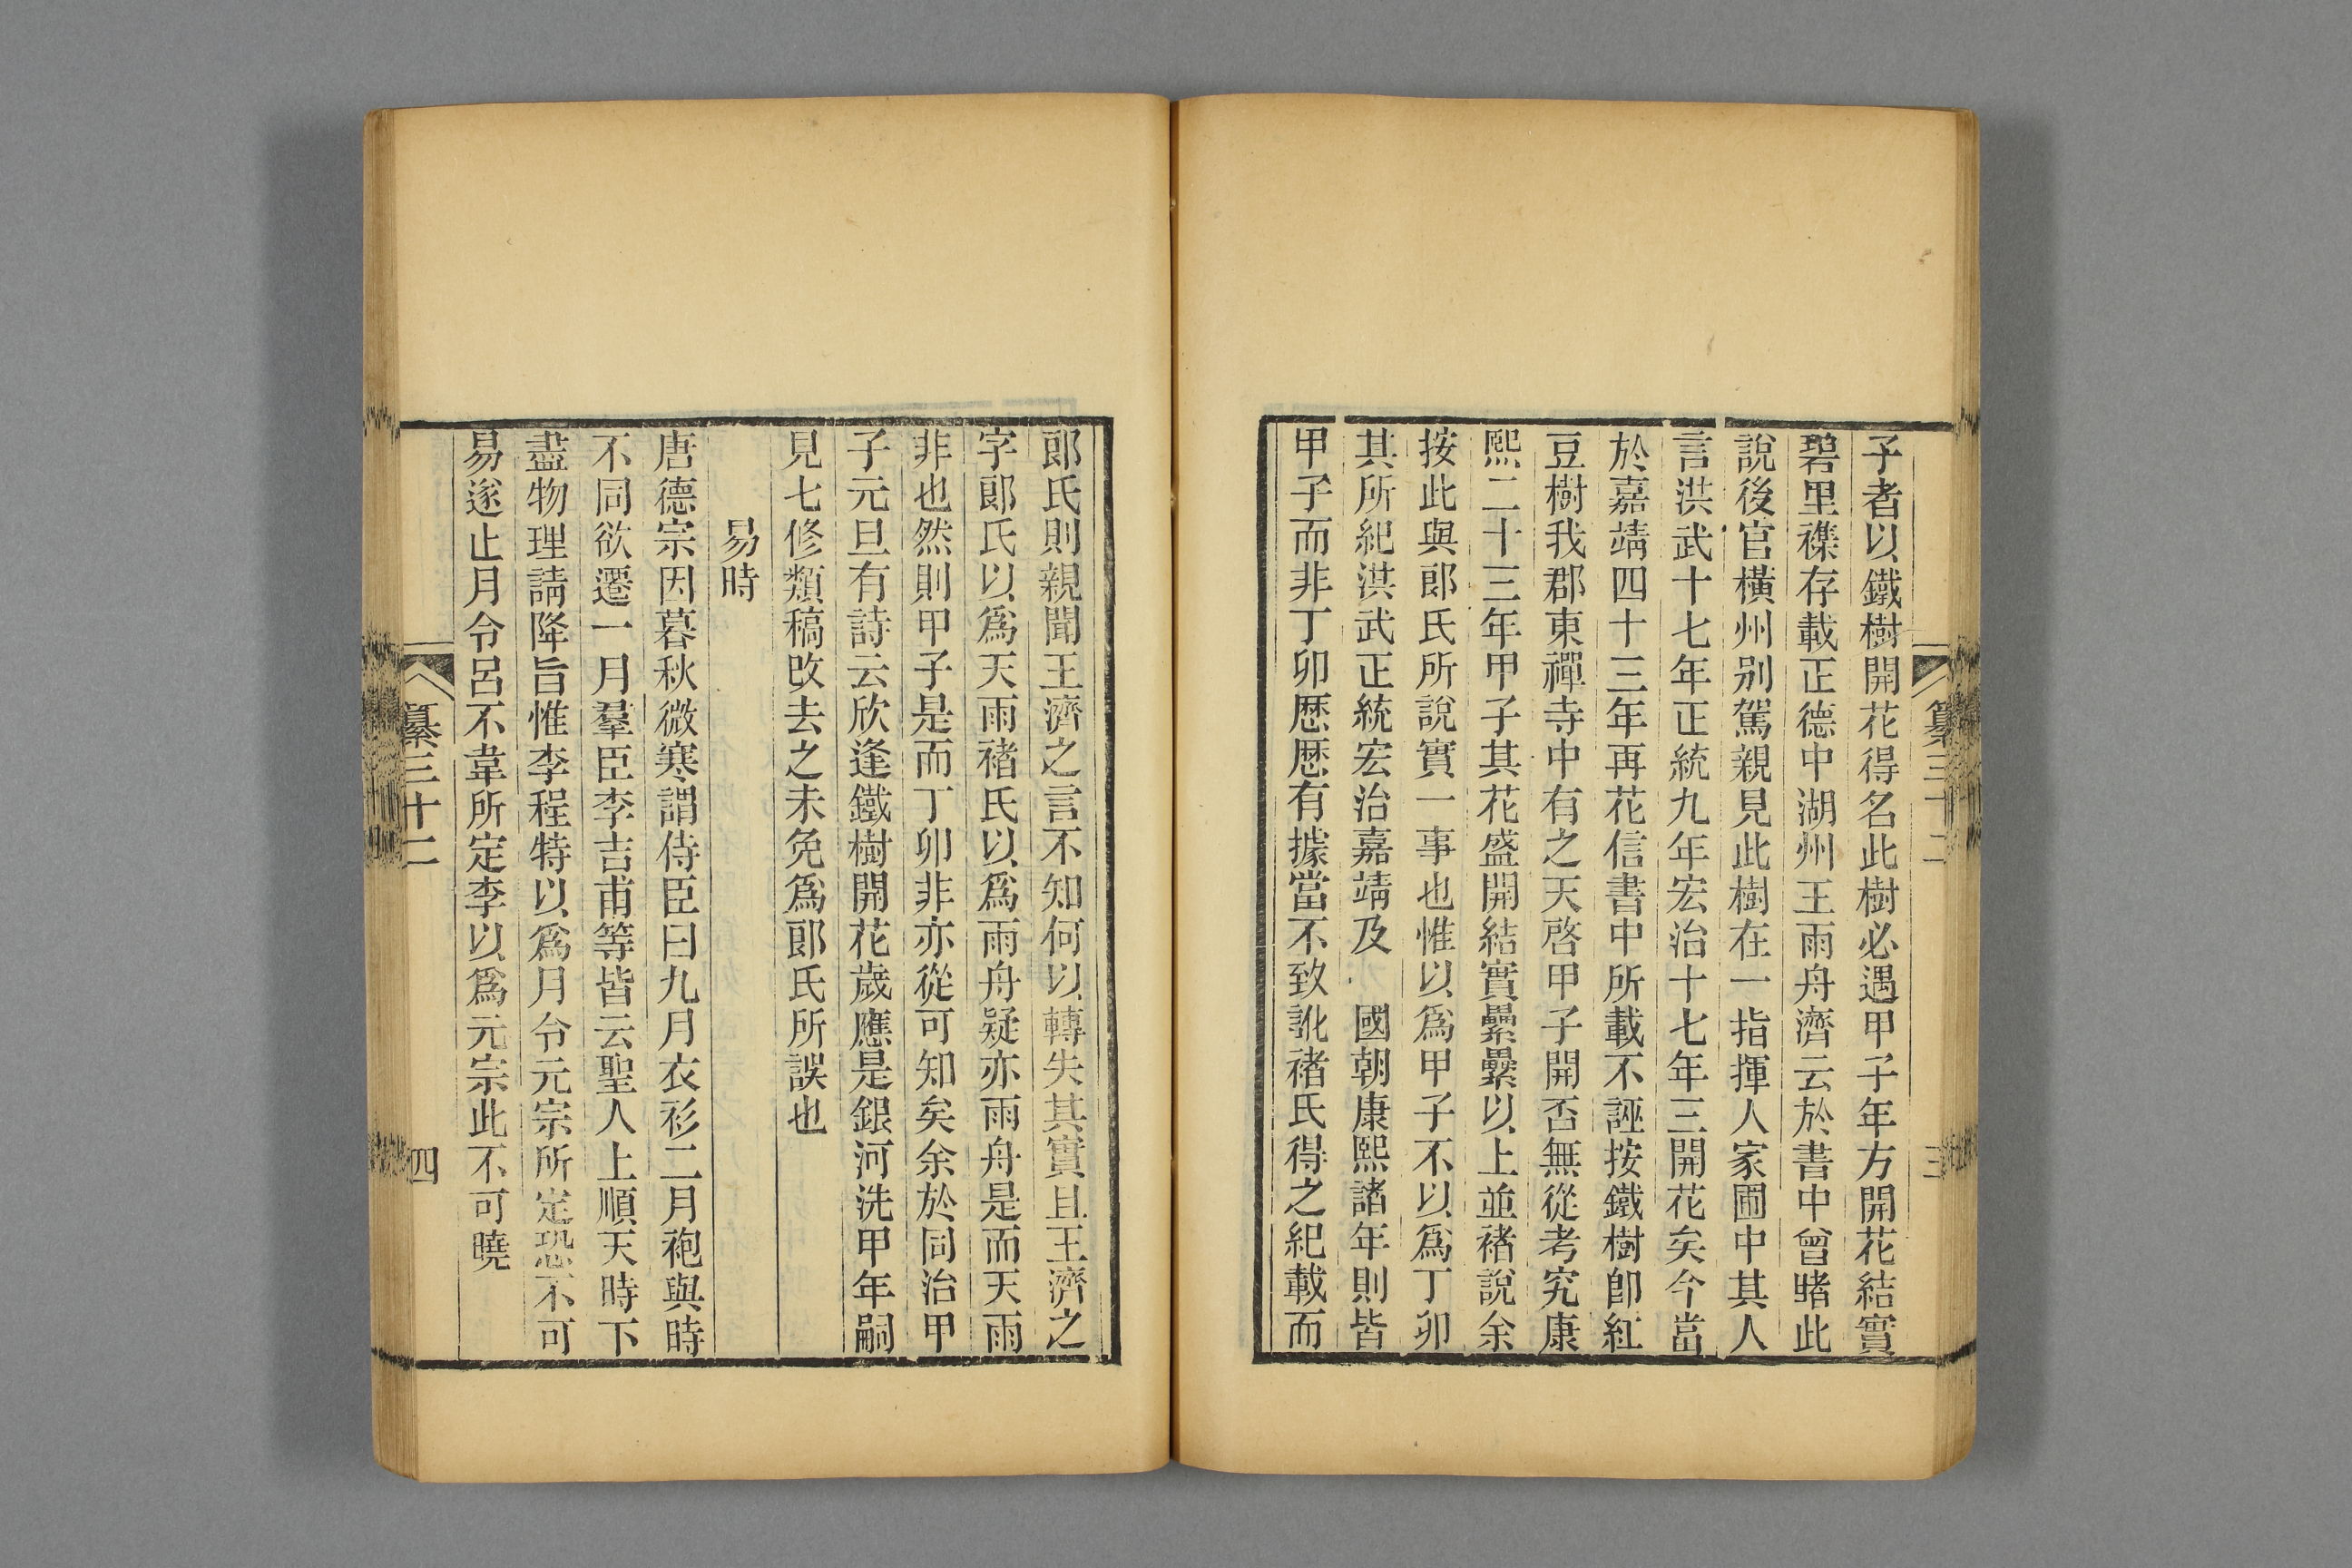 子者以鐵樹開花得名此樹必遇甲子年方開花結實
碧里襍存載正德中湖州王雨舟濟云於書中曾睹此
說後官橫州别駕親見此樹在一指揮人家圃中其人
言洪武十七年正統九年宏治十七年三開花矣今當
於嘉靖四十三年再花信書中所載不誣按鐵樹卽紅
豆樹我郡東禪寺中有之天啓甲子開否無從考究康
熙二十三年甲子其花盛開結實纍纍以上並褚說余
按此與郎氏所說實一事也惟以爲甲子不以爲丁卯
其所紀洪武正統宏治嘉靖及 國朝康熙諸年則皆
甲子而非丁卯歷歷有據當不致訛褚氏得之紀載而
纂三十二
三
郎氏則親聞王濟之言不知何以轉失其實且王濟之
字郎氏以爲天雨褚氏以爲雨舟疑亦雨舟是而天雨
非也然則甲子是而丁卯非亦從可知矣余於同治甲
子元旦有詩云欣逢鐵樹開花歲應是銀河洗甲年嗣
見七修類稿改去之未免爲郎氏所誤也
易時
唐德宗因暮秋微寒謂侍臣曰九月衣衫二月袍與時
不同欲遷一月羣臣李吉甫等皆云聖人上順天時下
盡物理請降旨惟李程特以爲月令元宗所定恐不可
易遂止月令呂不韋所定李以爲元宗此不可曉
纂三十二
四